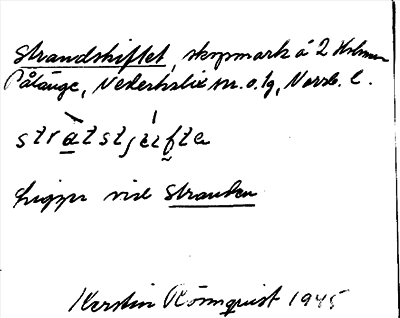 Strandskiftet, skogsmark å 2 Holmen
Pålänge, Nederkalix sn. o. tg, Norrb. l.
strà̱tstjìfte
Ligger vid Stranden
Kerstin Rönnquist 1945